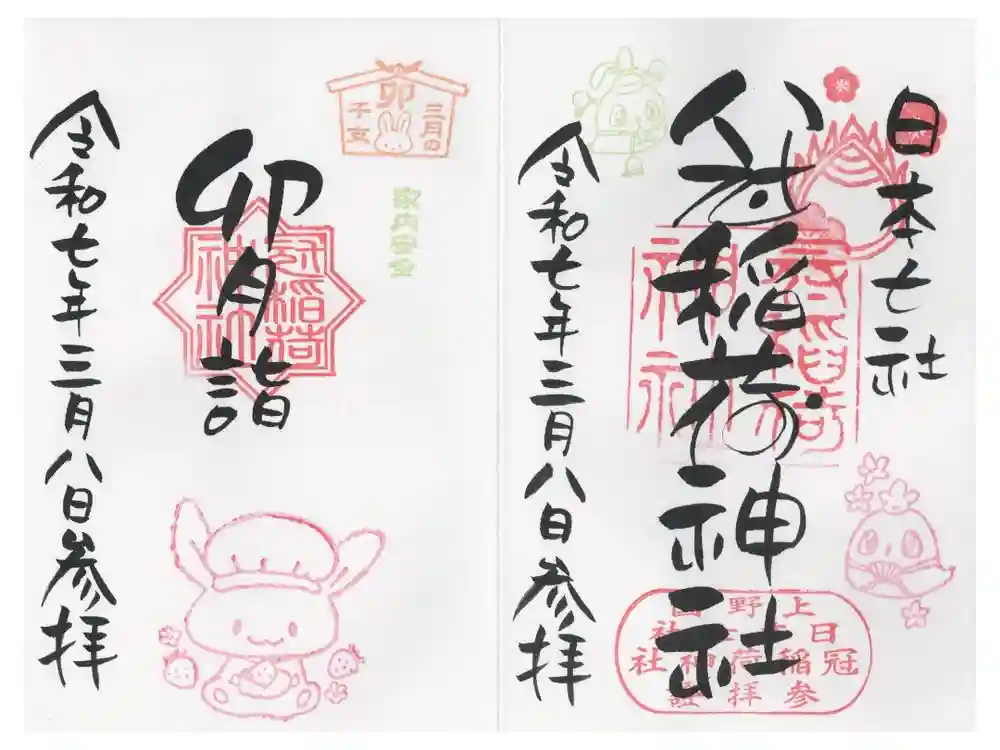 日本七社
冠稲荷神社
令和七年三月八日参拝
上野國
日本七社
冠稲荷神社
参拝證
三月の
卯
干支
家内安全
冠稲荷
神社
卯月詣
令和七年三月八日参拝